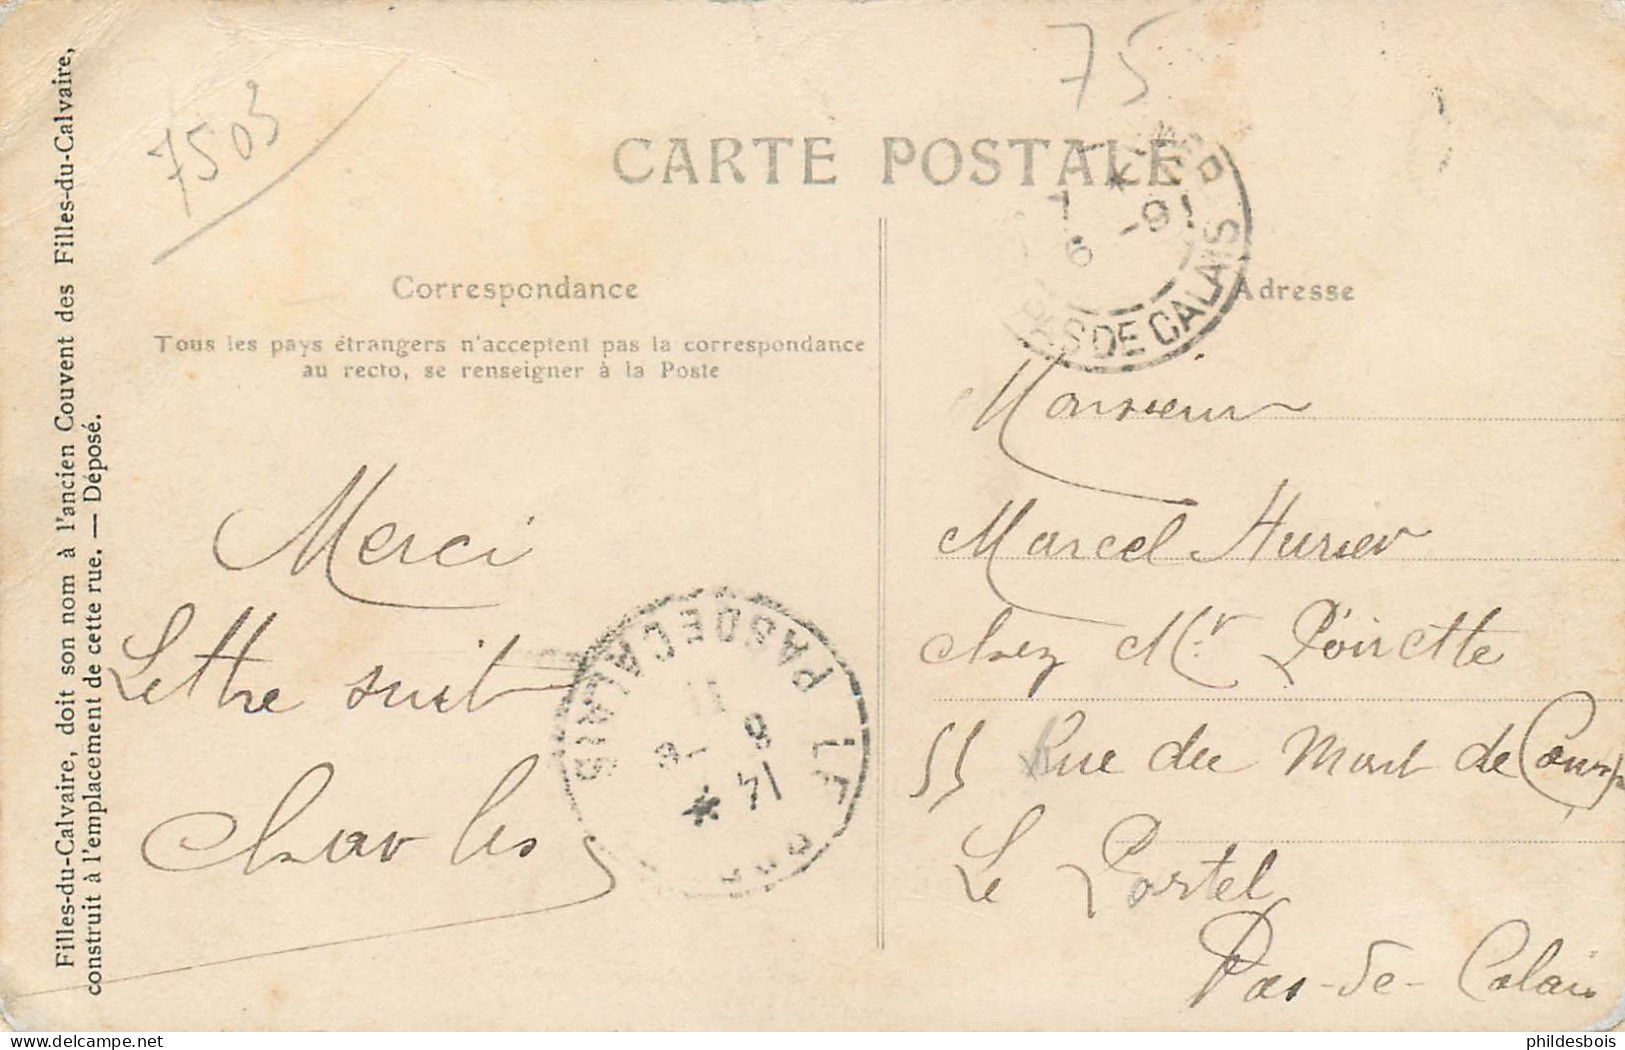 Filles-du-Calvaire, doit son nom à l'ancien Couvent des Filles-du-Calvaire,
construit à l'emplacement de cette rue. — Déposé.
7503
75
CARTE POSTALE
Correspondance
Tous les pays étrangers n'acceptent pas la correspondance
au recto, se renseigner à la Poste
Merci
Lettre suit
Charles
Adresse
PAS DE CALAIS
LE PORTEL
PAS DE CALAIS
Monsieur
Marcel Hurier
chez Mr. Poirette
55 Rue du Mont de
Le Portel
Pas-de-Calais
phildesbois